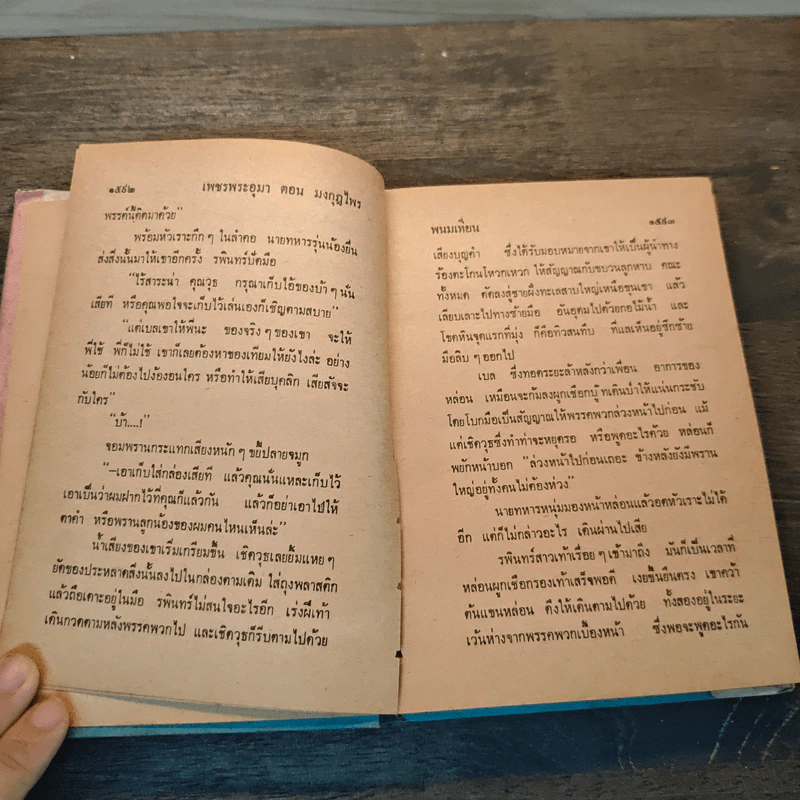 ๑๕๙๒ เพชรพระอุมา ตอน มงกุฎไพร
พรรค์นี้ติดมาด้วย”
พร้อมหัวเราะกึก ๆ ในลำคอ นายทหารรุ่นน้องยื่น
ส่งสิ่งนั้นมาให้เขาอีกครั้ง รพินทร์ปัดมือ
“ไร้สาระน่า คุณวุธ กรุณาเก็บไอ้ของบ้า ๆ นั่น
เสียที หรือคุณพอใจจะเก็บไว้เล่นเองก็เชิญตามสบาย”
“แต่เบลเขาให้พี่นะ ของจริง ๆ ของเขา จะให้
พี่ใช้ พี่ก็ไม่ใช้ เขาก็เลยต้องหาของเทียมให้ยังไงล่ะ อย่าง
น้อยก็ไม่ต้องไปง้องอนใคร หรือทำให้เสียบุคลิก เสียสัจจะ
กับใคร”
“บ้า....!”
จอมพรานกระแทกเสียงหนัก ๆ ขยี้ปลายจมูก
“—เอาเก็บใส่กล่องเสียที แล้วคุณนั่นแหละเก็บไว้
เอาเป็นว่าผมฝากไว้ที่คุณก็แล้วกัน แล้วก็อย่าเอาไปให้
ตาคำ หรือพรานลูกน้องของผมคนไหนเห็นล่ะ”
น้ำเสียงของเขาเริ่มเกรียมขึ้น เชิดวุธเลยยิ้มแหย ๆ
ยัดของประหลาดสิ่งนั้นลงไปในกล่องตามเดิม ใส่ถุงพลาสติก
แล้วถือเดาะอยู่ในมือ รพินทร์ไม่สนใจอะไรอีก เร่งฝีเท้า
เดินกวดตามหลังพรรคพวกไป และเชิดวุธก็รีบตามไปด้วย
พนมเทียน ๑๕๙๓
เสียงบุญคำ ซึ่งได้รับมอบหมายจากเขาให้เป็นผู้นำทาง
ร้องตะโกนโหวกเหวก ให้สัญญาณกับขบวนลูกหาบ คณะ
ทั้งหมด ตัดลงสู่ชายฝั่งทะเลสาบใหญ่เหนือขุนเขา แล้ว
เลียบเลาะไปทางซ้ายมือ อันอุดมไปด้วยกอไม้น้ำ และ
โขดหินจุดแรกที่มุ่ง ก็คือทิวสนทึบ ที่แลเห็นอยู่ซีกซ้าย
มือลิบ ๆ ออกไป
เบล ซึ่งทอดระยะล้าหลังกว่าเพื่อน อาการของ
หล่อน เหมือนจะก้มลงผูกเชือกบู๊ทเดินป่าให้แน่นกระชับ
โดยโบกมือเป็นสัญญาณให้พรรคพวกล่วงหน้าไปก่อน แม้
แต่เชิดวุธซึ่งทำท่าจะหยุดรอ หรือพูดอะไรด้วย หล่อนก็
พยักหน้าบอก “ล่วงหน้าไปก่อนเถอะ ข้างหลังยังมีพราน
ใหญ่อยู่ทั้งคนไม่ต้องห่วง”
นายทหารหนุ่มมองหน้าหล่อนแล้วอดหัวเราะไม่ได้
อีก แต่ก็ไม่กล่าวอะไร เดินผ่านไปเสีย
รพินทร์สาวเท้าเรื่อย ๆ เข้ามาถึง มันก็เป็นเวลาที่
หล่อนผูกเชือกรองเท้าเสร็จพอดี เงยขึ้นยืนตรง เขาคว้า
ต้นแขนหล่อน ดึงให้เดินตามไปด้วย ทั้งสองอยู่ในระยะ
เว้นห่างจากพรรคพวกเบื้องหน้า ซึ่งพอจะพูดอะไรกัน